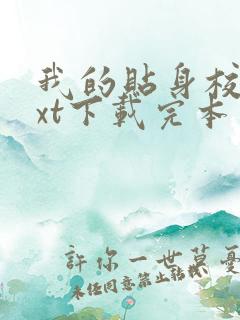 我的貼身校
xt下載完本
許你一世莫憂
未经同意禁止转载